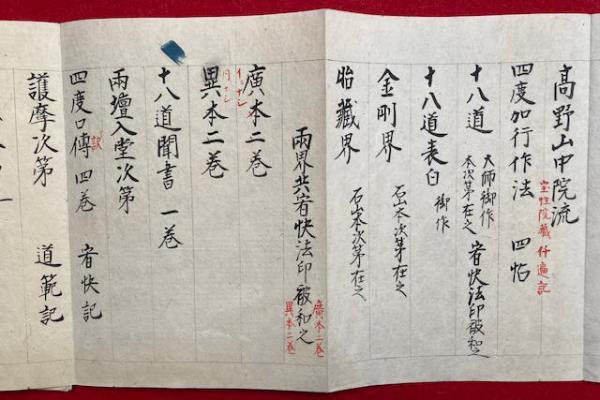 高野山中院流
四度加行作法 四帖
宝性院蔵 仟遍記
十八道 大師御作 本次第在之 宥快法印被和之
十八道表白 御作
金剛界 石山本次第在之
胎藏界 石山本次第在之
兩界共宥快法印被和之
廣本二巻
異本二巻
廣本二巻
異本二巻
十八道聞書 一巻
兩壇入堂次第
四度口傳 四巻 宥快記
護摩次第 道範記